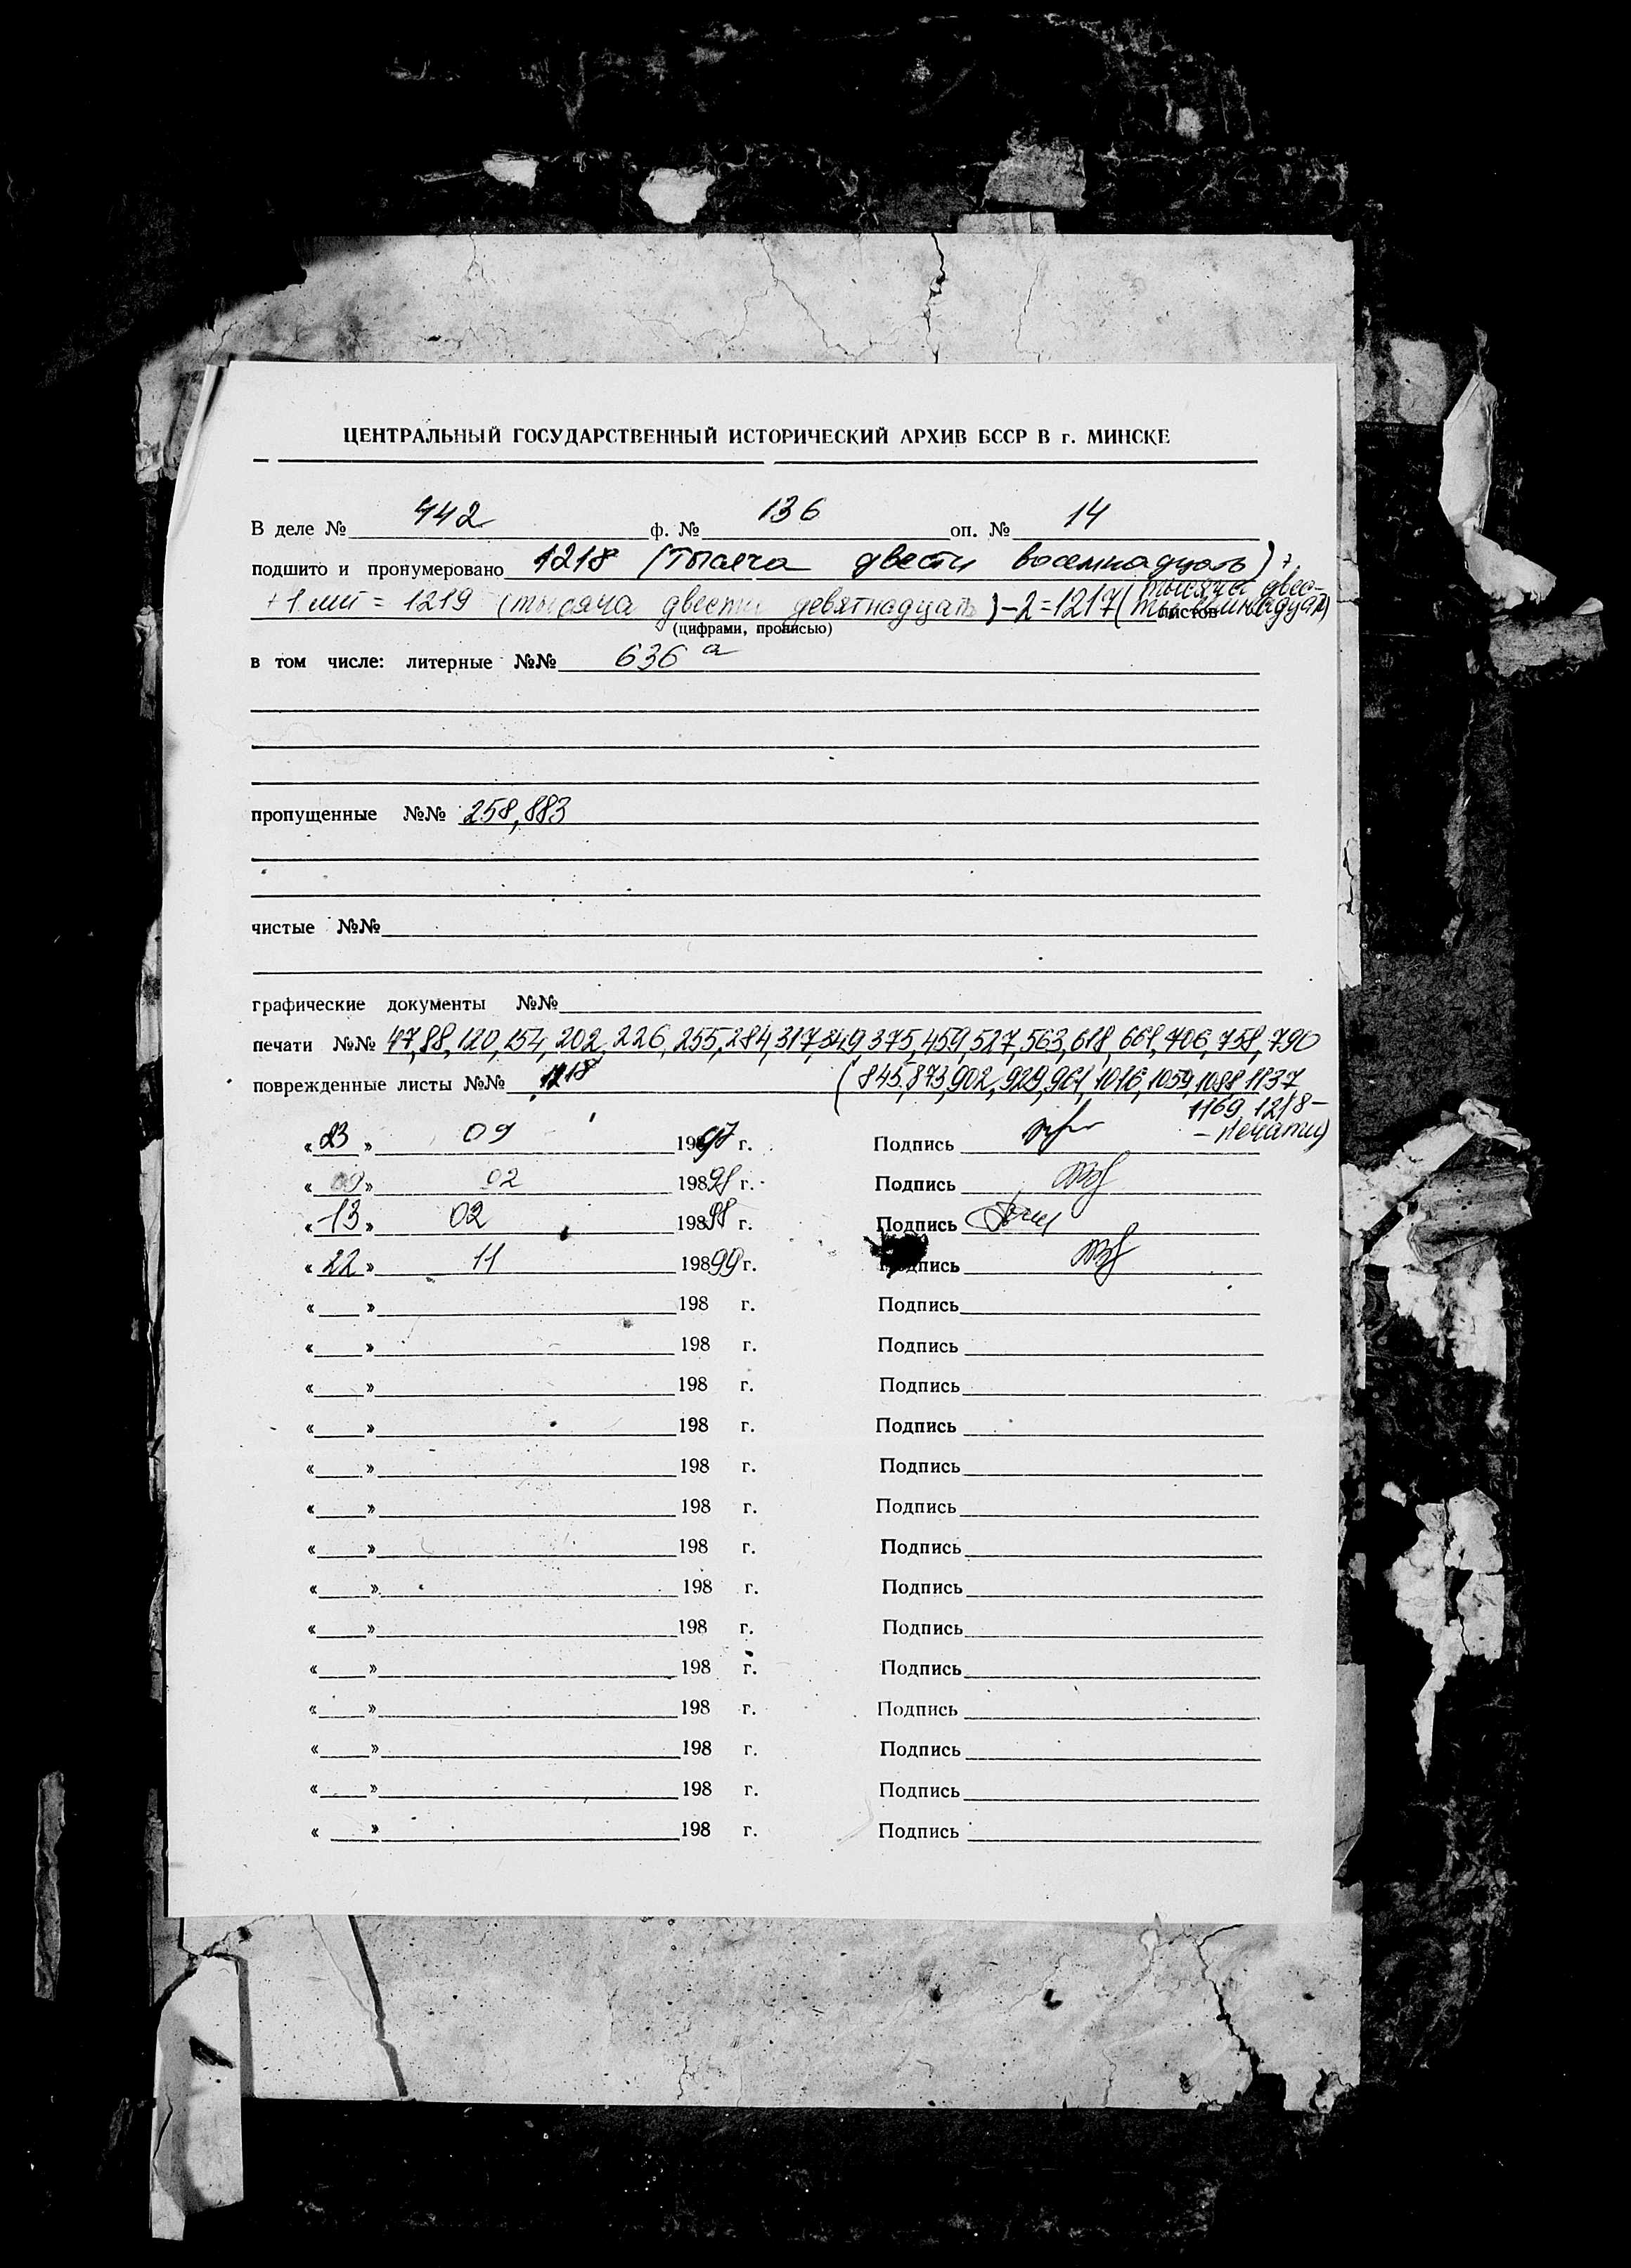 ЦЕНТРАЛЬНЫЙ ГОСУДАРСТВЕННЫЙ ИСТОРИЧЕСКИЙ АРХИВ БССР В г. МИНСКЕ
В деле № 442 ф. № 136 оп. № 14
подшито и пронумеровано 1218 (тысяча двести восемнадцать) +
+ 1 лит = 1219 (тысяча двести девятнадцать) – 2 = 1217 (тысяча двес-
ти семнадцать) листов
(цифрами, прописью)
в том числе: литерные №№ 636 а
пропущенные №№ 258, 883
чистые №№
графические документы №№
печати №№ 47, 88, 120, 154, 202, 226, 255, 284, 317, 349, 375, 459, 527, 563, 618, 661, 706, 758, 790
поврежденные листы №№ 1218 (845, 873, 902, 929, 961, 1016, 1059, 1088, 1137
1169, 1218 –
– печати)
« 23 » 09 1997 г. Подпись
« 09 » 02 19898 г. Подпись
« 13 » 02 19898 г. Подпись
« 22 » 11 19899 г. Подпись
« » 198 г. Подпись
« » 198 г. Подпись
« » 198 г. Подпись
« » 198 г. Подпись
« » 198 г. Подпись
« » 198 г. Подпись
« » 198 г. Подпись
« » 198 г. Подпись
« » 198 г. Подпись
« » 198 г. Подпись
« » 198 г. Подпись
« » 198 г. Подпись
« » 198 г. Подпись
« » 198 г. Подпись